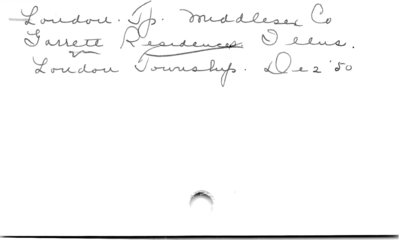 London. Tp. Middlesex Co
Garrett Residences Illus.
London Township. Dec 2 '50